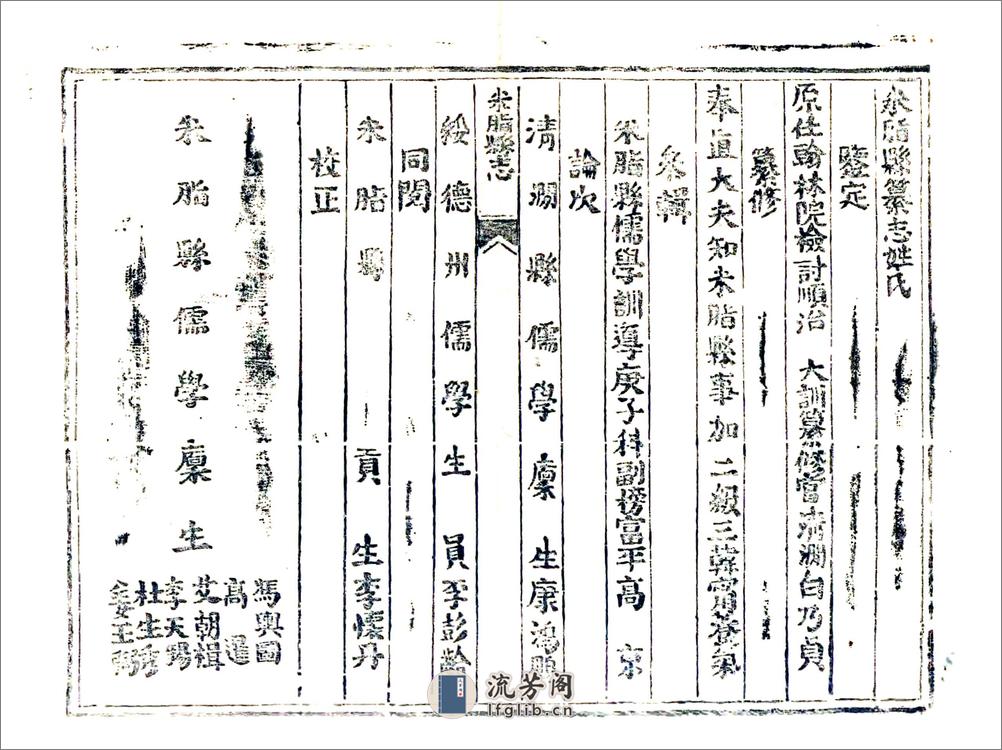 米脂縣纂志姓氏
鑒定
原任翰林院檢討順治 大訓纂修官清澗白乃貞
纂修
奉直大夫知米脂縣事加二級三韓甯養氣
糸輯
米脂縣儒學訓導庚子科副榜富平高 京
論次
清澗縣儒學廩生康鴻
米脂縣志
綏德州儒學生員李彭齡
同閱
米脂縣 貢生李懷丹
校正
米脂縣儒學廩生
馮興國
高暹
艾朝楫
李天錫
杜生秀